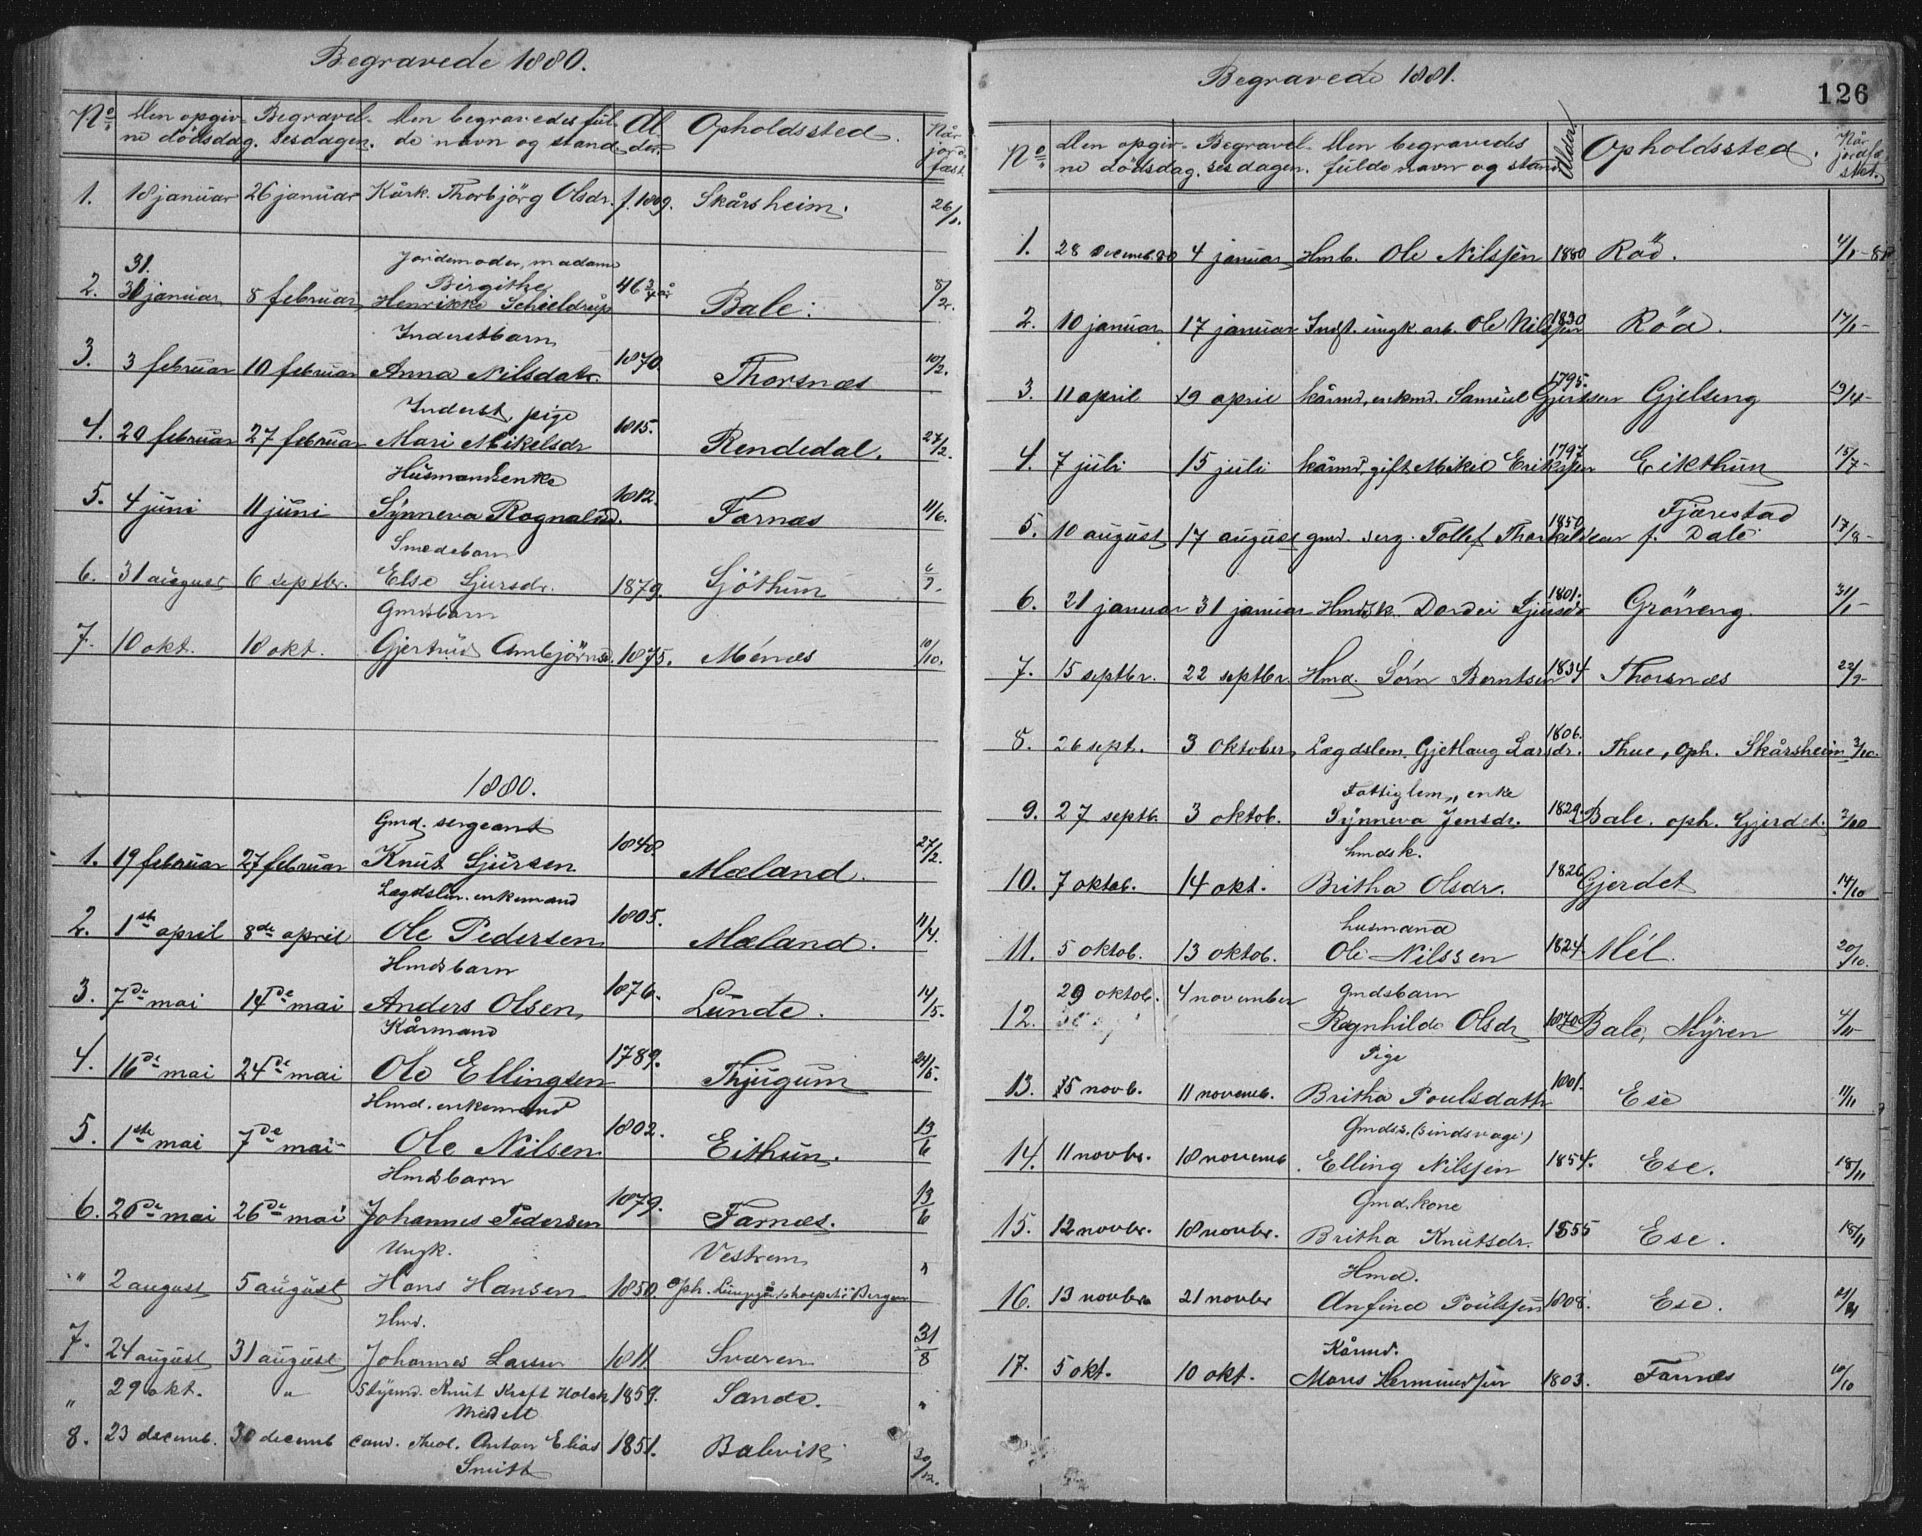 Begravede 1880.
No. Den opgivne dödsdag. Begravelsesdagen. Den begravedes fulde navn og stand. Alder. Opholdssted. Når jordfæst.
1. 18 januar 26 januar Kårk. Thorbjörg Olsdr. f. 1809. Skårsheim. 26/1.
31. Jordemoder, madame
Birgithe
2. 30 januar 8 februar Henrikke Schieldrup 46 3/4 år Bale. 8/2.
Inderstbarn
3. 3 februar 10 februar Anna Nilsdatr. 1870 Thorsnæs 10/2.
Inderst, pige
4. 20 februar 27 februar Mari Mikelsdr 1815. Rendedal. 27/2.
Husmandsenke
5. 4 juni 11 juni Synneva Rognalsd. 1812. Farnæs 11/6.
Smedebarn
6. 31 august 6 septbr. Else Sjursdr. 1879. Sjöthun 6/9.
Gmdsbarn
7. 10 okt. 18 okt. Gjertrud Ambjörnsd. 1875. Ménæs 18/10.
1880.
Gmd. sergeant
1. 19 februar 27 februar Knut Sjursen 1848. Mæland. 27/2.
Lægdslem. enkemand
2. 1ste april 8de april Ole Pedersen 1805. Mæland. 11/4.
Hmdsbarn
3. 7de mai 14de mai Anders Olsen 1876. Lunde. 14/5.
Kårmand
4. 16de mai 24de mai Ole Ellingsen 1789. Thjugum 24/5.
Hmd. enkemand
5. 1ste mai 7de mai Ole Nilsen 1802. Eithun. 13/6
Hmdsbarn
6. 20de mai 26de mai Johannes Pedersen 1879. Farnæs. 13/6
Ungk. Vestrem
" 2 august 5 august Hans Hansen 1850 oph. Lungegårdshospital i Bergen "
Hmd.
7. 24 august 31 august Johannes Larsen 1811 Sværen 31/8
" 29 okt. " Styrmd. Knut Kraft Holck 1859. Sande. "
8. 23 decemb. 30 decemb cand. theol. Anton Elias 1851. Balevik 30/12.
Smitt
Begravede 1881.
126
No. Den opgivne dödsdag. Begravelsesdagen. Den begravedes fulde navn og stand. Alder. Opholdssted. Når jordfæstet.
1. 28 decemb. 80 4 januar Hmb. Ole Nilssen 1880 Röd. 4/1-81
2. 10 januar 17 januar Indst. ungk. arb. Ole Nilssen 1830 Röd. 17/1-
3. 11 april 19 april kårmd. enkmd. Samuel Gjertsen 1795. Gjelseng 19/4-
4. 7 juli 15 juli kårmd. gift Mikel Eriksen 1797 Eikthun 15/7-
Fjærestad
5. 10 august 17 august gmd. serg. Tollef Thorkildsen 1850 f. Dale 17/8-
6. 21 januar 31 januar Hmdsk. Dordei Sjursdr 1801. Gröneng. 31/1-
7. 15 septbr. 22 septbr. Hmd. Sörn Berntsen 1834 Thorsnæs 22/9-
8. 26 sept. 3 oktober Lægdslem. Gjetlaug Larsdr. 1806. Thue, oph. Skårsheim 3/10.
Fattiglem, enke
9. 27 septb. 3 oktob. Synneva Jensdr. 1829. Bale. oph. Gjerdet. 3/10
hmdsk.
10. 7 oktob. 14 okt. Britha Olsdr. 1826 Gjerdet 14/10
husmand
11. 5 oktob. 13 oktob. Ole Nilssen 1824. Mél. 20/10.
29 oktob. 4 november Gmdsbarn
12. Ragnhilde Olsdr 1870 Bale, Myren 4/11
Pige
13. 5 novb. 11 novemb. Britha Poulsdatr 1801. Ese 11/11
Gmdss. (sindssvage)
14. 11 novbr. 18 novemb. Elling Nilssen 1854. Ese. 18/11
Gmd. kone
15. 12 novbr. 18 novbr. Britha Knutsdr. 1855 Ese. 18/11
Hmd.
16. 13 novbr. 21 novbr Anfind Poulssen 1808. Ese. 21/11
Kårmd.
17. 5 okt. 10 okt. Mons Hermundssen 1803. Farnæs 10/10